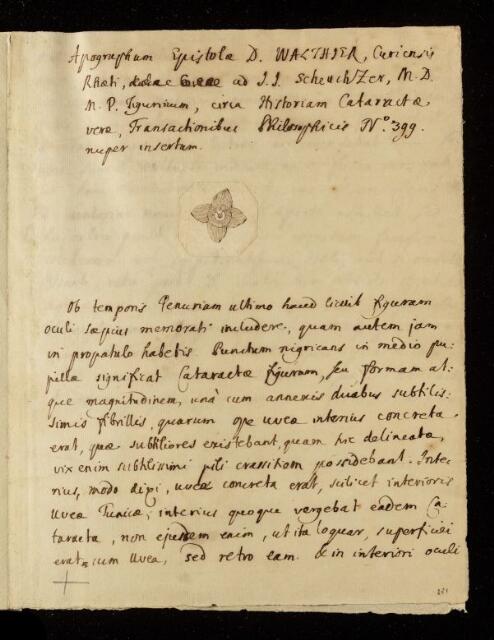 Apographum Epistolæ D. WALTHIER, Curiensis
Rhæti, ad J.J. Scheuchzer, M.D.
M.P. Tigurinum, circa Historiam Cataractæ
veræ, Transactionibus Philosophicis N.º 399.
nuper insertam.
Ob temporis Penuriam ultimo haud licuit figuram
oculi sæpius memorati includere, quam autem jam
in propatulo habetis. Punctum nigricans in medio pu-
pillæ significat Cataractæ figuram, seu formam at-
que magnitudinem, unà cum annexis duabus subtilis-
simis fibrillis, quarum ope uveæ interius concreta
erat, quæ subtiliores existebant, quam hic delineatæ,
vix enim subtilissimi pili crassitiem possidebant. Inte-
rius, modo dixi, uveæ concreta erat, scilicet interioris
Uveæ Tunicæ; interius quoque vergebat eadem Ca-
taracta, non ejusdem enim, ut ita loquar, superficiei
erat cum Uvea, sed retro eam. & in interiori oculi